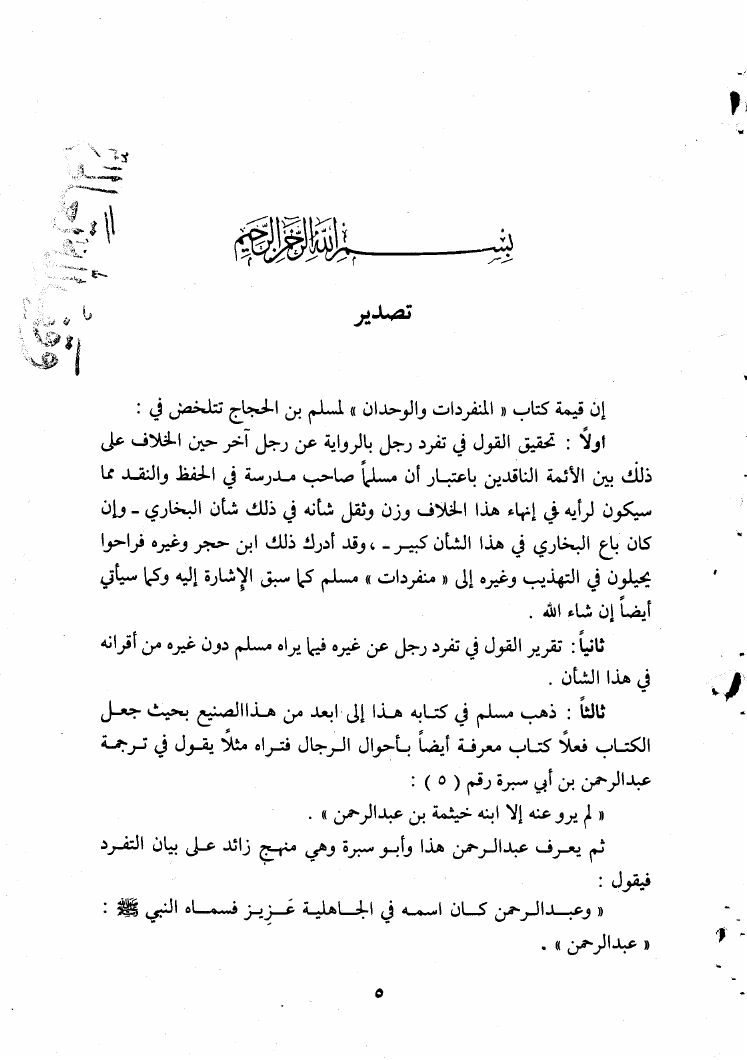 وقف لله تعالى
بسم الله الرحمن الرحيم
تصدير
إن قيمة كتاب « المنفردات والوحدان » لمسلم بن الحجاج تتلخص في :
اولاً : تحقيق القول في تفرد رجل بالرواية عن رجل آخر حين الخلاف على
ذلك بين الأئمة الناقدين باعتبار أن مسلماً صاحب مدرسة في الحفظ والنقد مما
سيكون لرأيه في إنهاء هذا الخلاف وزن وثقل شأنه في ذلك شأن البخاري ـ وإن
كان باع البخاري في هذا الشأن كبير ـ ، وقد أدرك ذلك ابن حجر وغيره فراحوا
يحيلون في التهذيب وغيره إلى « منفردات » مسلم كما سبق الإشارة إليه وكما سيأتي
أيضاً إن شاء الله .
ثانياً : تقرير القول في تفرد رجل عن غيره فيما يراه مسلم دون غيره من أقرانه
في هذا الشأن .
ثالثاً : ذهب مسلم في كتابه هذا إلى ابعد من هذا الصنيع بحيث جعل
الكتاب فعلاً كتاب معرفة أيضاً بأحوال الرجال فتراه مثلاً يقول في ترجمة
عبدالرحمن بن أبي سبرة رقم ( ٥ ) :
« لم يرو عنه إلا ابنه خيثمة بن عبدالرحمن » .
ثم يعرف عبدالرحمن هذا وأبو سبرة وهي منهج زائد على بيان التفرد
فيقول :
« وعبدالرحمن كان اسمه في الجاهلية عَزِيز فسماه النبي ﷺ :
« عبدالرحمن » .
٥